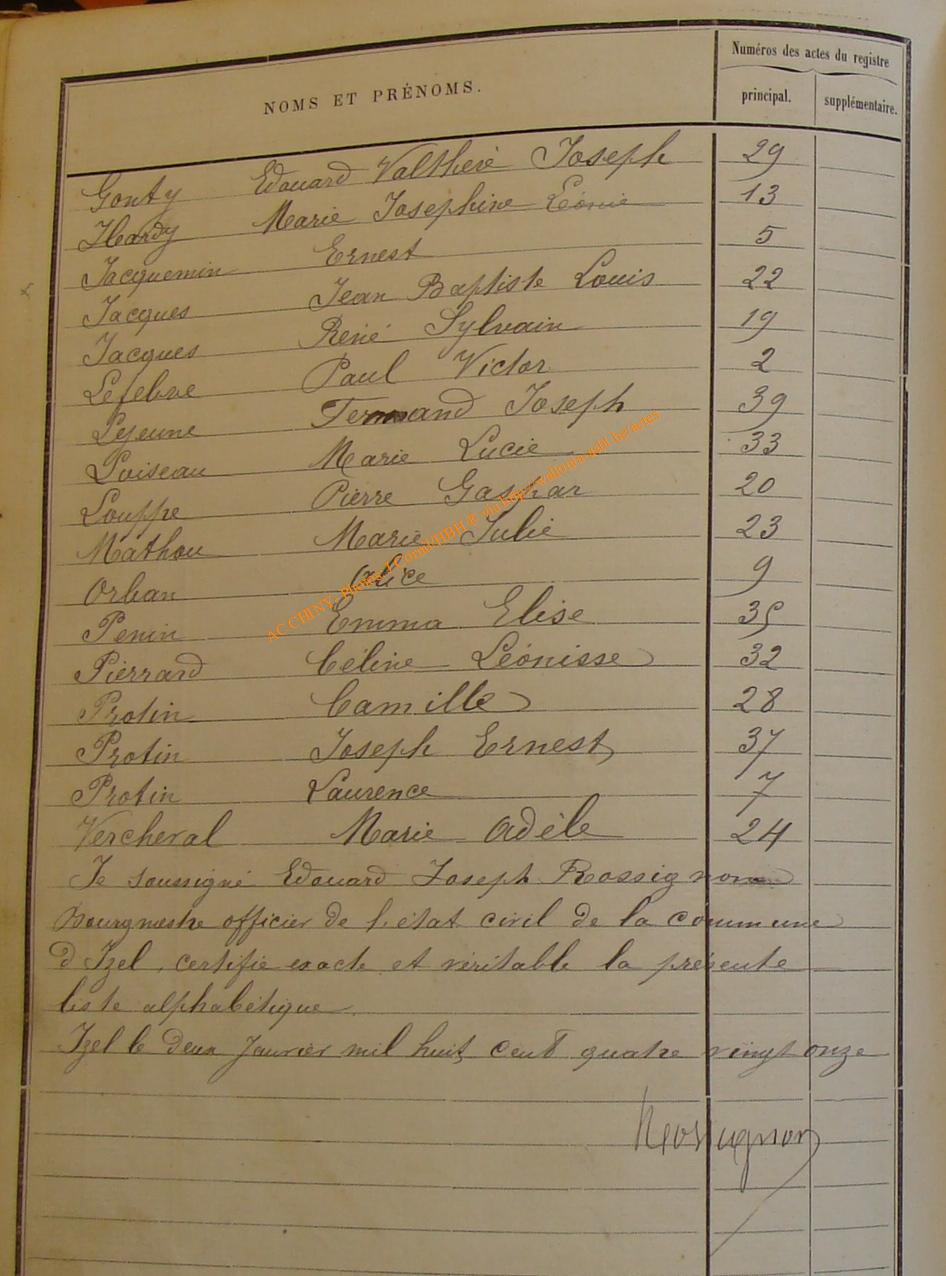 Numéros des actes du registre
NOMS ET PRÉNOMS.
principal. supplémentaire.
Gonty Edouard Valthère Joseph 29
Hardy Marie Josephine Léonie 13
Jacquemin Ernest 5
Jacques Jean Baptiste Louis 22
Jacques René Sylvain 19
Lefebvre Paul Victor 2
Lejeune Fernand Joseph 39
Loiseau Marie Lucie 33
Louppe Pierre Gaspar 20
Mathou Marie Julie 23
Orban Alice 9
Penin Emma Elise 35
Pierrard Céline Léonisse 32
Protin Camille 28
Protin Joseph Ernest 37
Protin Laurence 7
Vercheval Marie Adèle 24
Je soussigné Edouard Joseph Rossignon
Bourgmestre officier de l'état civil de la commune
d'Izel, certifie exacte et véritable la présente
liste alphabétique.
Izel le deux Janvier mil huit cent quatre vingt onze
Rossignon
AC CHINY